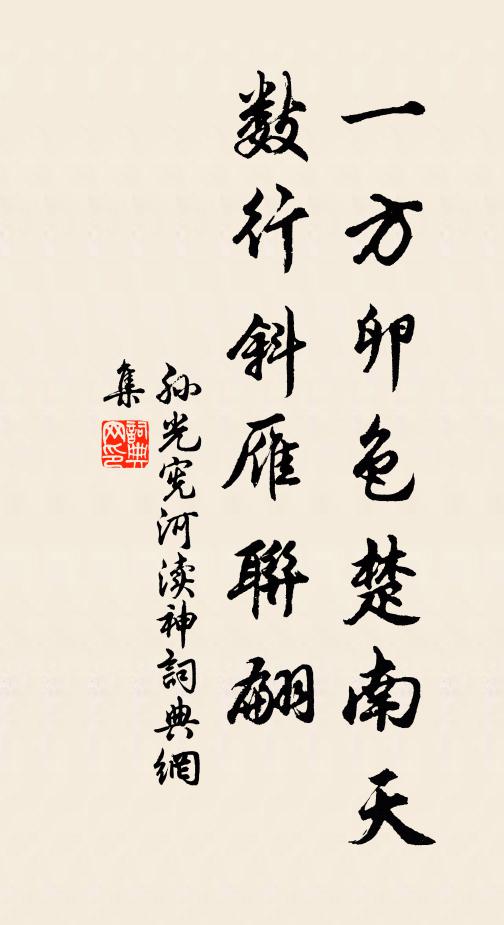 一方卵色楚南天
數行斜雁聯翩
孫光宪河渎神詞典網
集
詞典
网印